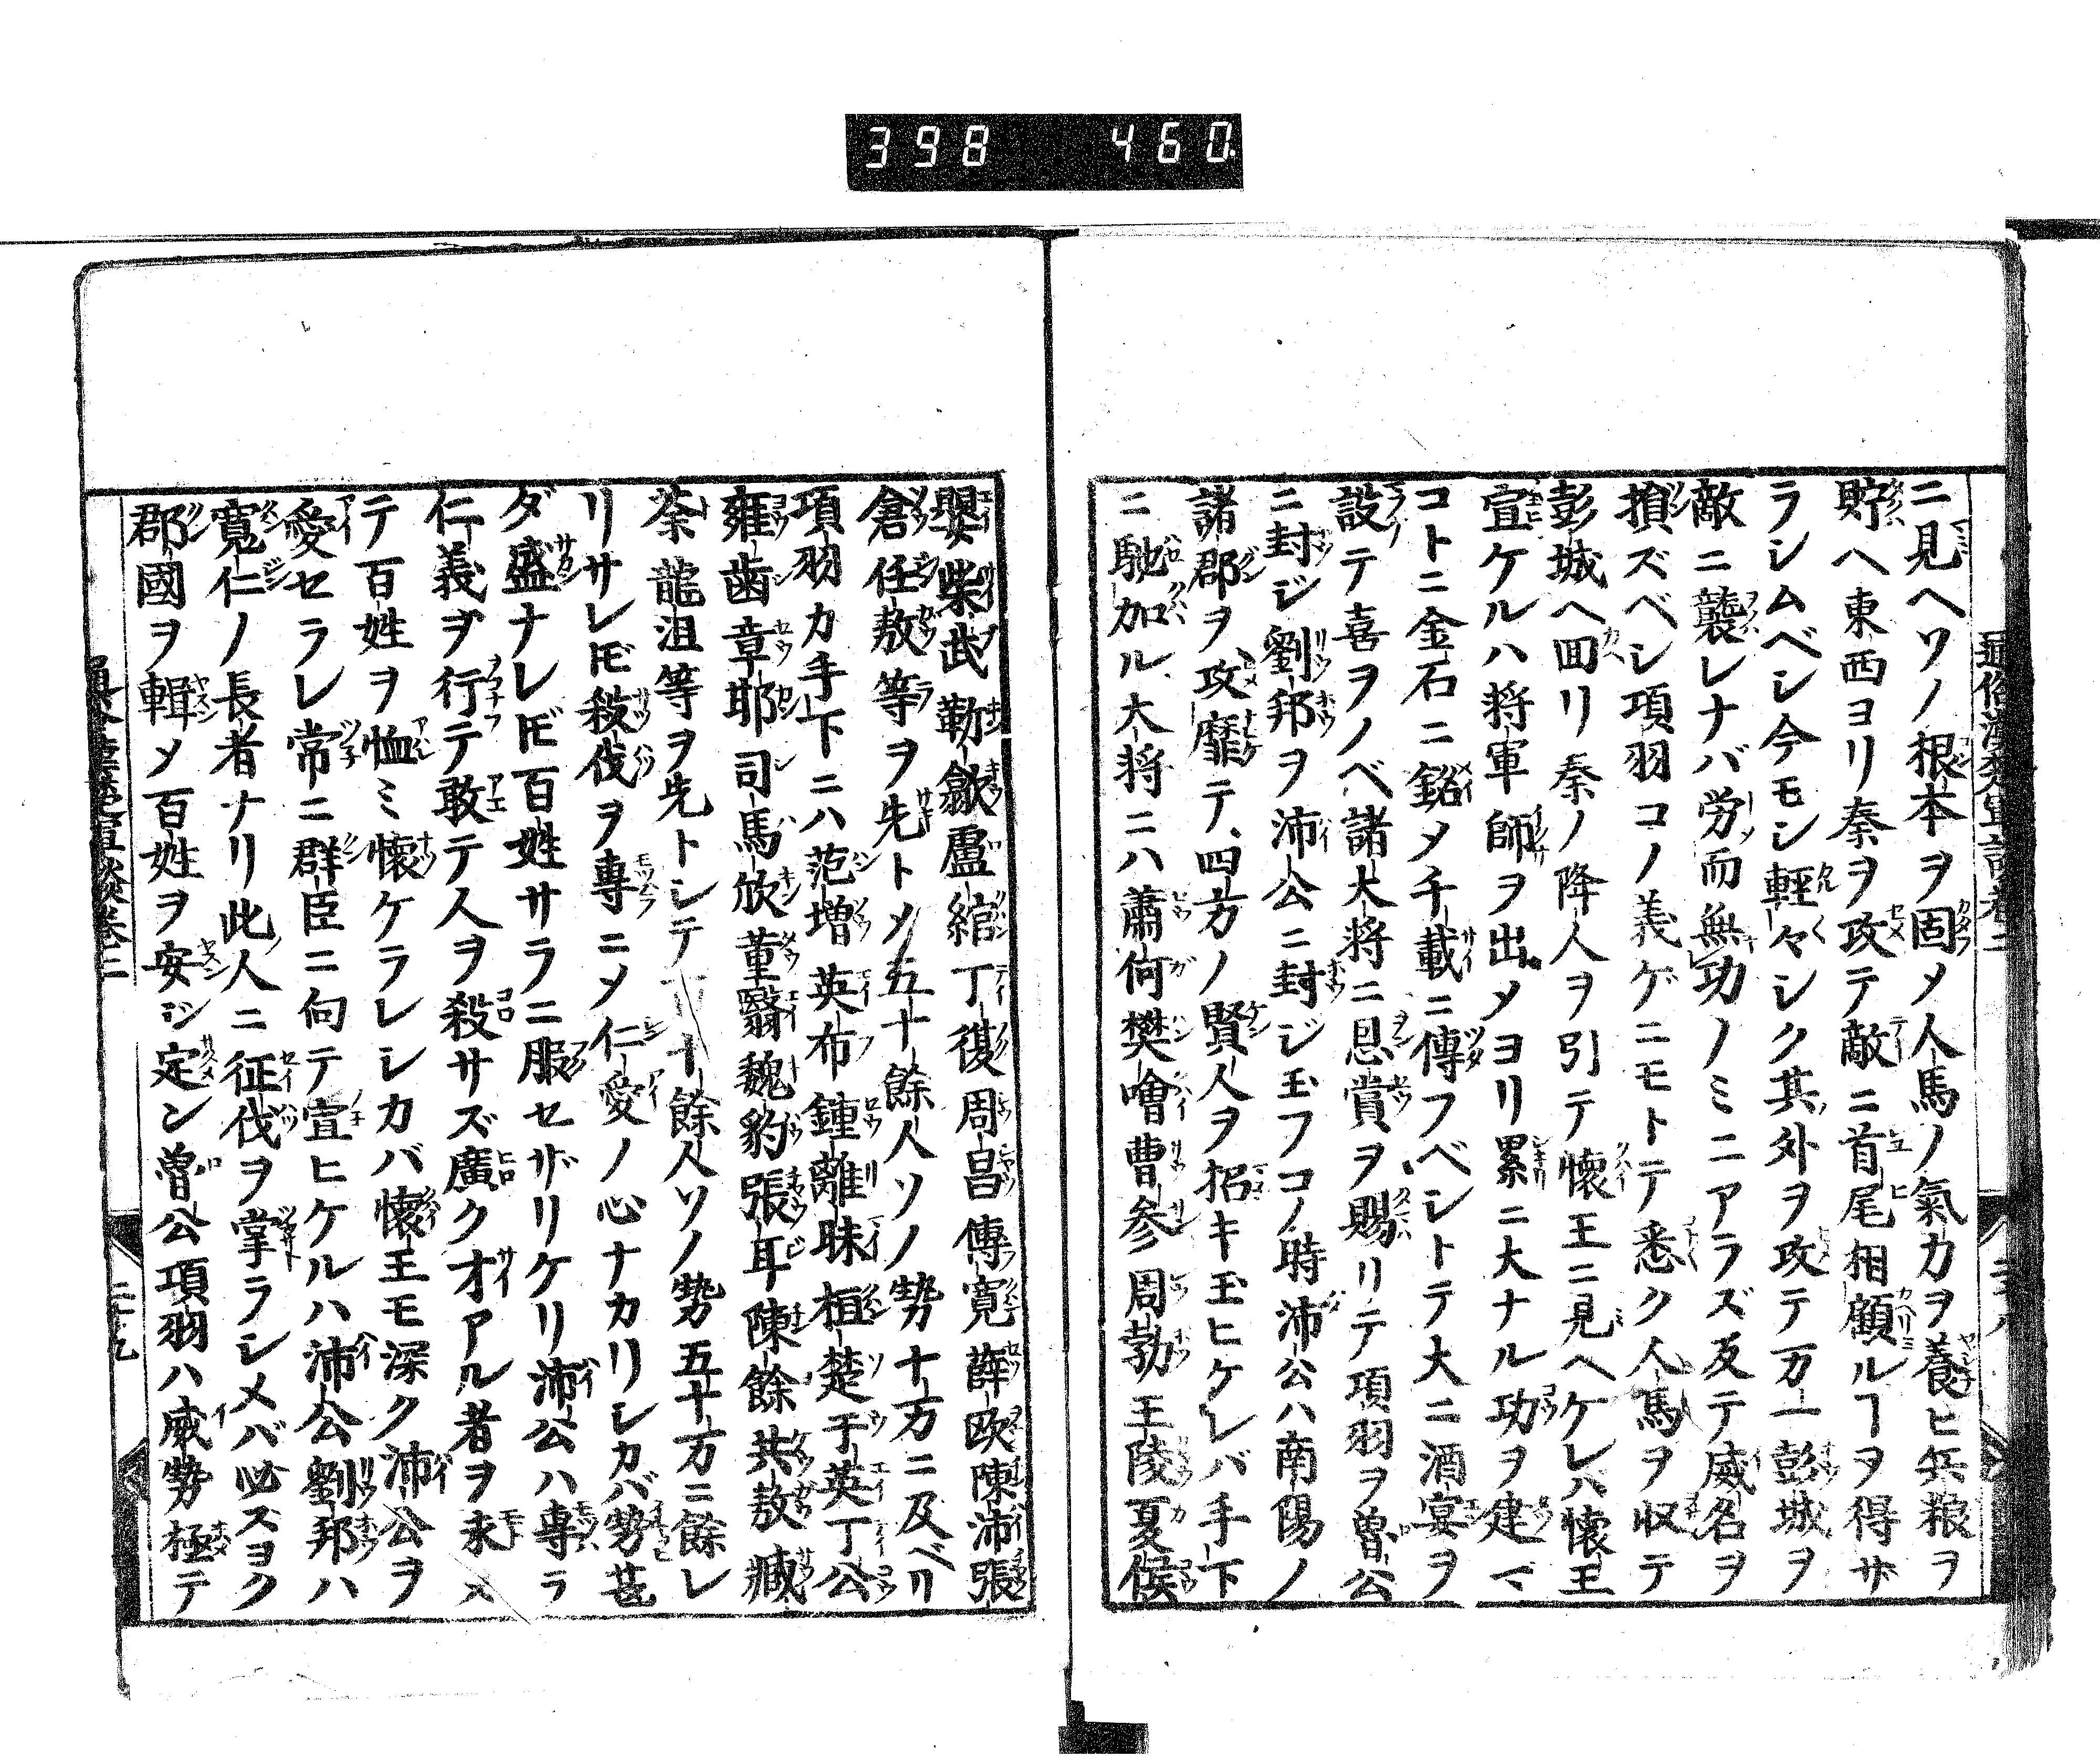 398 460
ニ見ヘソノ根本ヲ固メ人馬ノ氣力ヲ養ヒ兵粮ヲ
貯ヘ東西ヨリ秦ヲ攻テ敵ニ首尾相顧ルヿヲ得ザ
ラシムベシ今モシ輕々シク其外ヲ攻テ万一彭城ヲ
敵ニ襲レナバ労而無功ノミニアラズ反テ威名ヲ
損ズベシ項羽コノ義ゲニモトテ悉ク人馬ヲ収テ
彭城ヘ回リ秦ノ降人ヲ引テ懷王ニ見ヘケレハ懷王
宣ケルハ将軍師ヲ出メヨリ累ニ大ナル功ヲ建マ
コトニ金石ニ銘メ千載ニ傳フベシトテ大ニ酒宴ヲ
設テ喜ヲノベ諸大将ニ恩賞ヲ賜リテ項羽ヲ魯公
ニ封ジ劉邦ヲ沛公ニ封ジ玉フコノ時沛公ハ南陽ノ
諸郡ヲ攻靡テ四方ノ賢人ヲ招キ玉ヒケレバ手下
ニ馳加ル大将ニハ蕭何樊噲曹参周勃王陵夏侯
嬰柴武靳歙盧綰丁復周昌傅寛薛欧陳沛張
倉任敖等ヲ先トメ五十餘人ソノ勢十万ニ及ベリ
項羽カ手下ニハ范増英布鍾離昧桓楚于英丁公
雍齒章邯司馬欣董翳魏豹張耳陳餘共敖臧
荼龍沮等ヲ先トシテ十餘人ソノ勢五十万ニ餘レ
リサレ𪜈殺伐ヲ專ニメ仁愛ノ心ナカリシカバ勢甚
ダ盛ナレ𪜈百姓サラニ服セザリケリ沛公ハ專ラ
仁義ヲ行テ敢テ人ヲ殺サズ廣ク才アル者ヲ求メ
テ百姓ヲ恤ミ懷ケラレシカバ懷王モ深ク沛公ヲ
愛セラレ常ニ群臣ニ向テ宣ヒケルハ沛公劉邦ハ
寛仁ノ長者ナリ此人ニ征伐ヲ掌ラシメバ必スヨク
郡國ヲ輯メ百姓ヲ安ジ定ン魯公項羽ハ威勢極テ
二十九